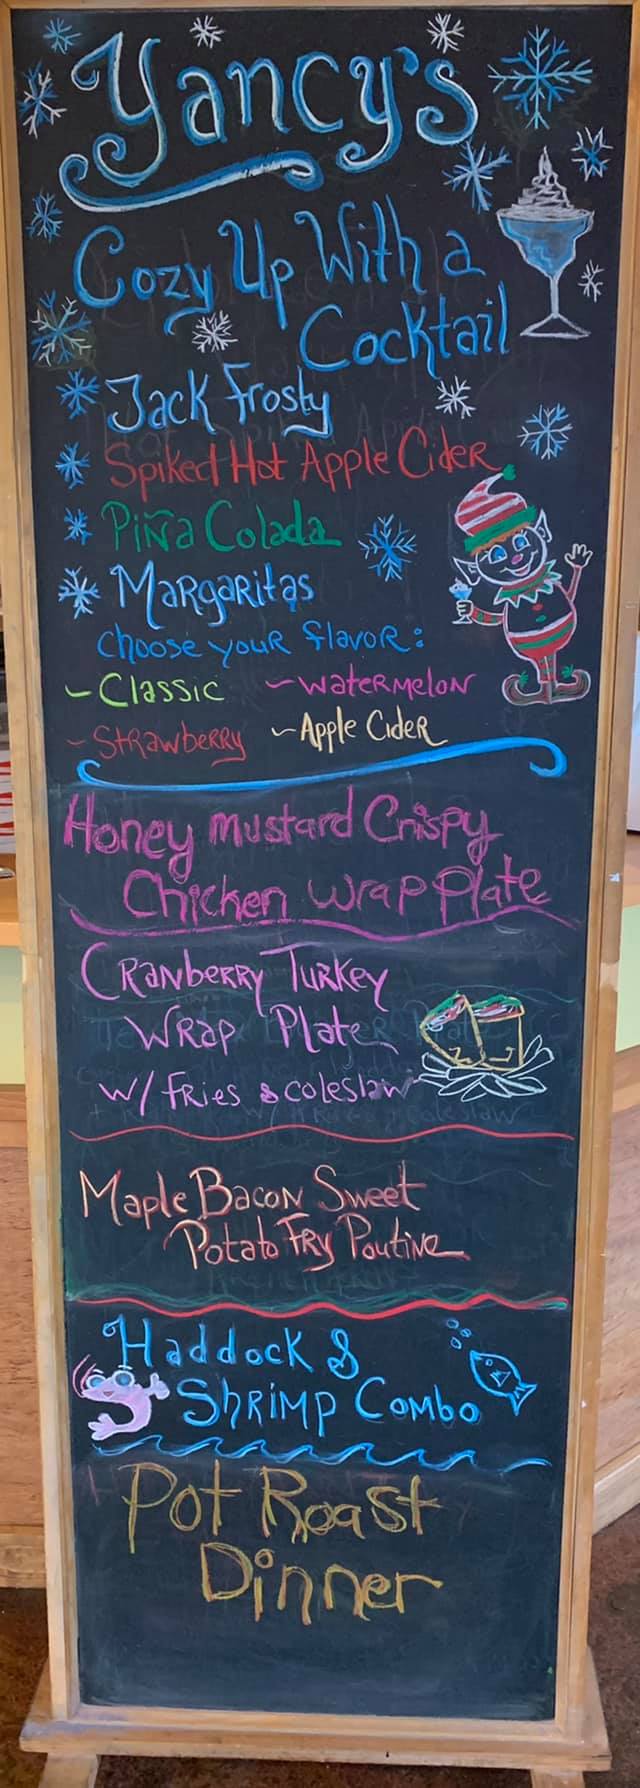 Yancy's
Cozy Up With a
Cocktail
Jack Frosty
Spiked Hot Apple Cider
Piña Colada
Margaritas
choose your flavor:
~Classic ~Watermelon
~Strawberry ~Apple Cider
Honey Mustard Crispy
Chicken Wrap Plate
Cranberry Turkey
Wrap Plate
w/ Fries & coleslaw
Maple Bacon Sweet
Potato Fry Poutine
Haddock &
Shrimp Combo
Pot Roast
Dinner